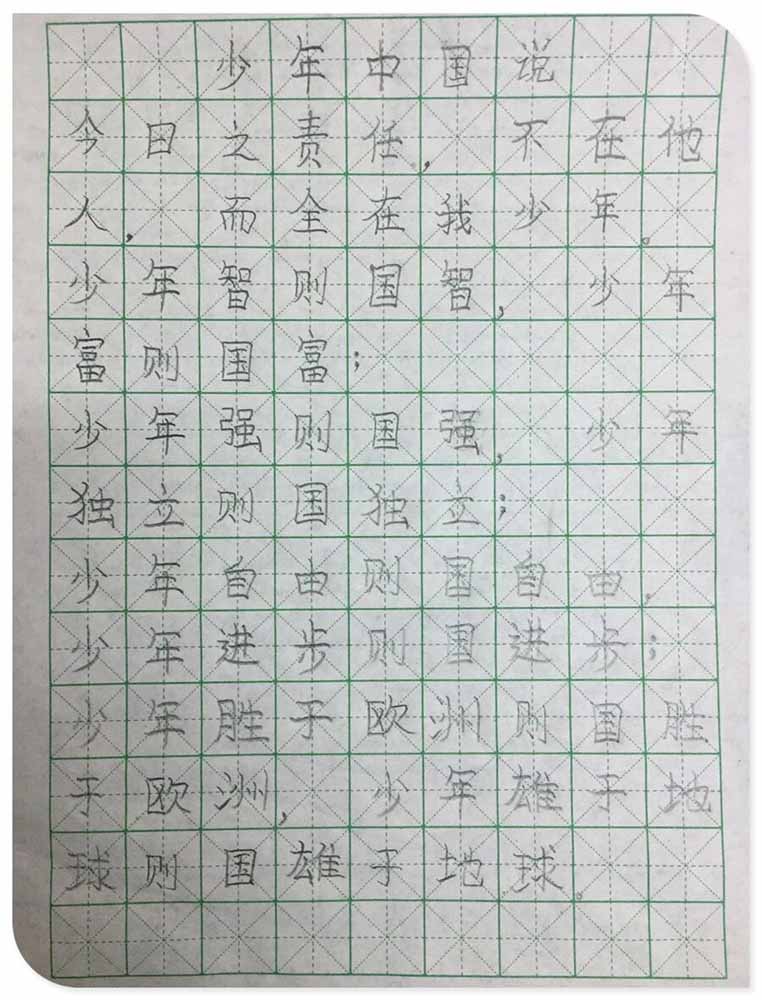 少年中国说
今日之责任，不在他
人，而全在我少年。
少年智则国智，少年
富则国富；
少年强则国强，少年
独立则国独立；
少年自由则国自由，
少年进步则国进步；
少年胜于欧洲则国胜
于欧洲，少年雄于地
球则国雄于地球。